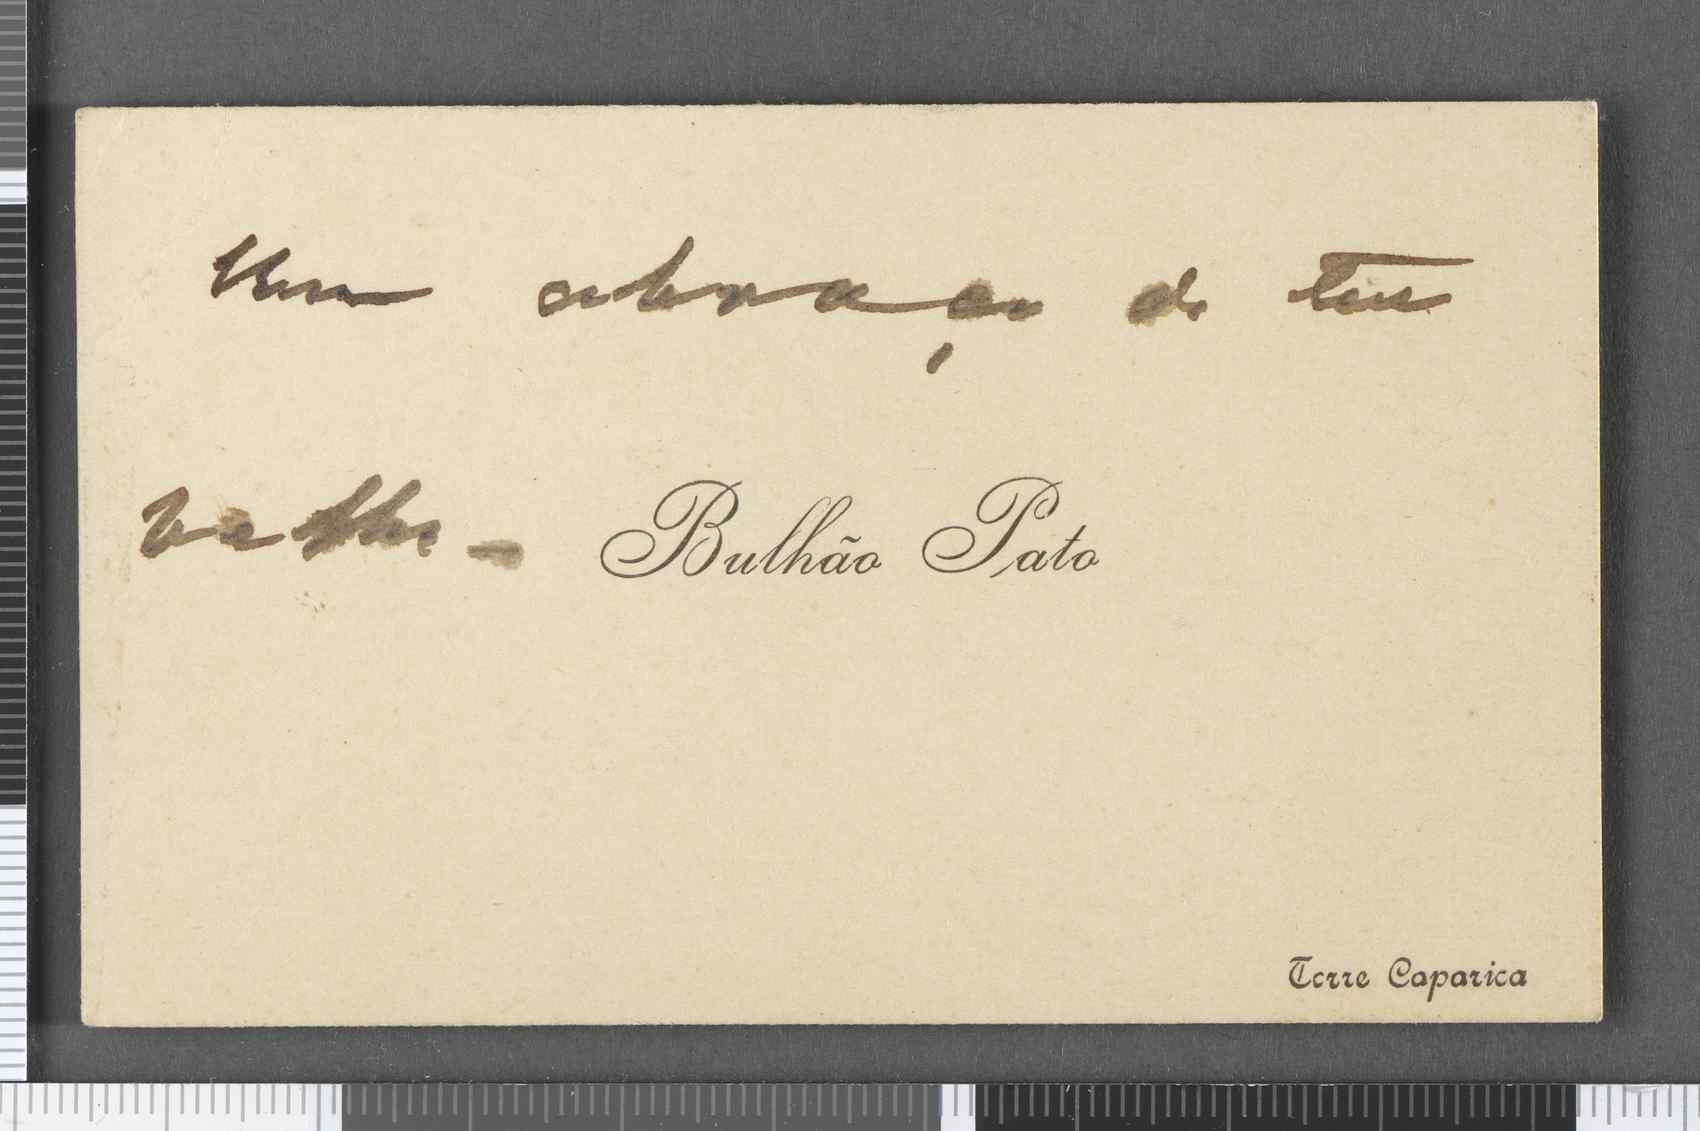 Um abraço do teu
velho – Bulhão Pato
Torre Caparica